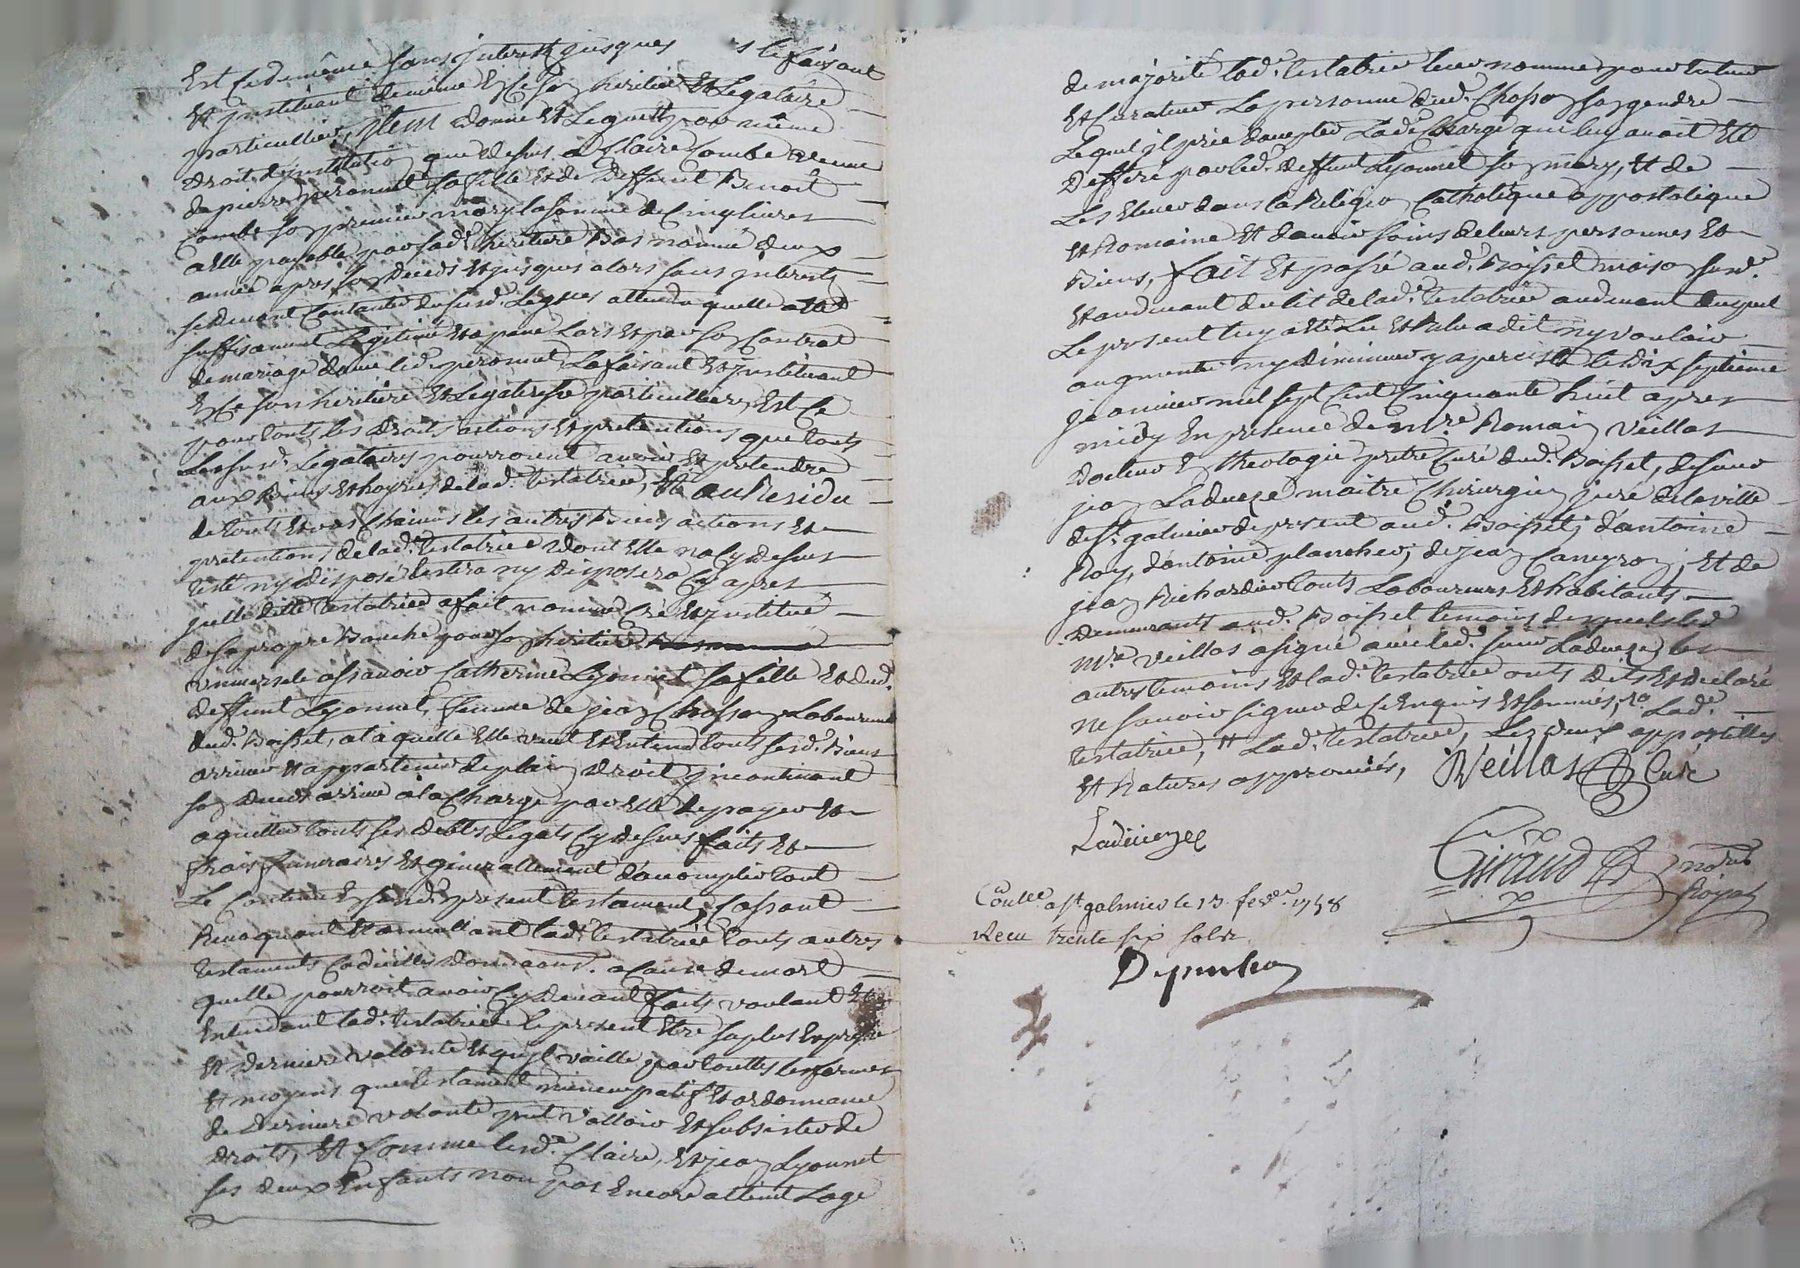 Est ce de même sans interest jusques s le faisant
Et instituant de même En ce son heritier Et Legataire
particullier, Item donne Et Leguett par même
droit d'institution que dessus a Claire Combe femme
de pierre peronnet sa fille Et de deffunt Benoit
Combe son premier mary la somme de Cinq livres
a Elle payable par sad.e heritiere Bas nommée deux
année apres son deceds Et jusques alors sans interests
se devant Contanter du susd. Legues attendu quelle a Eté
suffisament Legitimé Et apané Lors Et par son Contrat
de mariage avec led. peronnet La faisant Et instituant
En ce son heritiere Et Legateresse particulliere, Est ce
pour touts les droits actions Et pretentions que touts
Les susd. Legataires pourroient avoir Et pretendre
aux Biens Et hoyries de lad.e testatrice, Et au Residu
de touts Et uns Chacuns les autres Biens actions Et
pretentions de lad.e testatrice dont Elle na Cy dessus
testé ny disposé testera ny disposera Cy apres
jcelle ditte testatrice a fait nommé Créé Et institué
de sa propre Bouche pour son heritiere
universele assavoir Catherine Lyonnet sa fille Et dud.
deffunt Lyonnet, femme de jean Chosson Laboureur
dud. Boisset, a laquelle Elle veut Et Entend touts sesd. Biens
arriver Et appartenir de plein droit incontinant
son deceds arrivé a la Charge par Elle de payer Et
aquitter touts ses debtes Legats Cy dessus faits Et
frais funeraires Et generallement d'acomplir tout
Le Contenu En son present testament, Cassant
Revoquant Et annullant lad.e testatrice touts autres
testaments Codicilles donnaons. a Cause de mort
quelle pourroit avoir Cy devant faits voulant Et
Entendant lad.e testatrice le present Etre sa plus Expresse
Et derniere volonté Et qu'jl vaille par touttes les formes
Et moyens que testament nuncupatif Et ordonnance
de derniere volonté peut valloir Et subsister de
droits, Et Comme lesd. Claire, Et jean Lyonnet
ses deux Enfants nont pas Encore atteint Lage
de majorité lad.e testatrice leur nomme pour tuteur
Et Curateur La personne dud. Chosson son gendre
Lequel jl prie d'accepter Lade Charge qui luy avoit Eté
defferé par led. deffunt Lyonnet son mary, Et de
Les Elever dans la Religion Catholique appostolique
Et Romaine Et d'avoir soins de leurs personnes Et
Biens, fait Et passé aud. Boisset maison susd.
Et au devant du lit de lad.e testatrice au devant duquel
Le present luy a Eté Lu Et Relu a dit ny vouloir
augmenter ny diminuer y a persisté Le dix septieme
jeanvier mil sept Cent Cinquante huit apres
midy En presence de m.re Romain Veillas
docteur En theologie pretre Curé dud. Boisset, de sieur
jean Ladueze maitre Chirurgien juré de la ville
de S.t galmier de present aud. Boisset, d'antoine
Roy, d'antoine plancher, de jean Caneyron, Et de
jean Richardier touts Laboureurs Et habitants
demeurants aud. Boisset temoins desquels led.
m.re veillas a signé avec led. sieur Ladueze les
autres temoins Et lad.e testatrice onts dits Et declaré
ne savoir signer de Ce Enquis Et sommés, Lad.e
testatrice, Et Lad.e testatrice, Les deux appostilles
Et Ratures approuvés, Veillas Curé
Ladueze
Giraud no.re Royal
Con.lé a S.t galmier le 13 fev.r 1758
Recu trente six sols